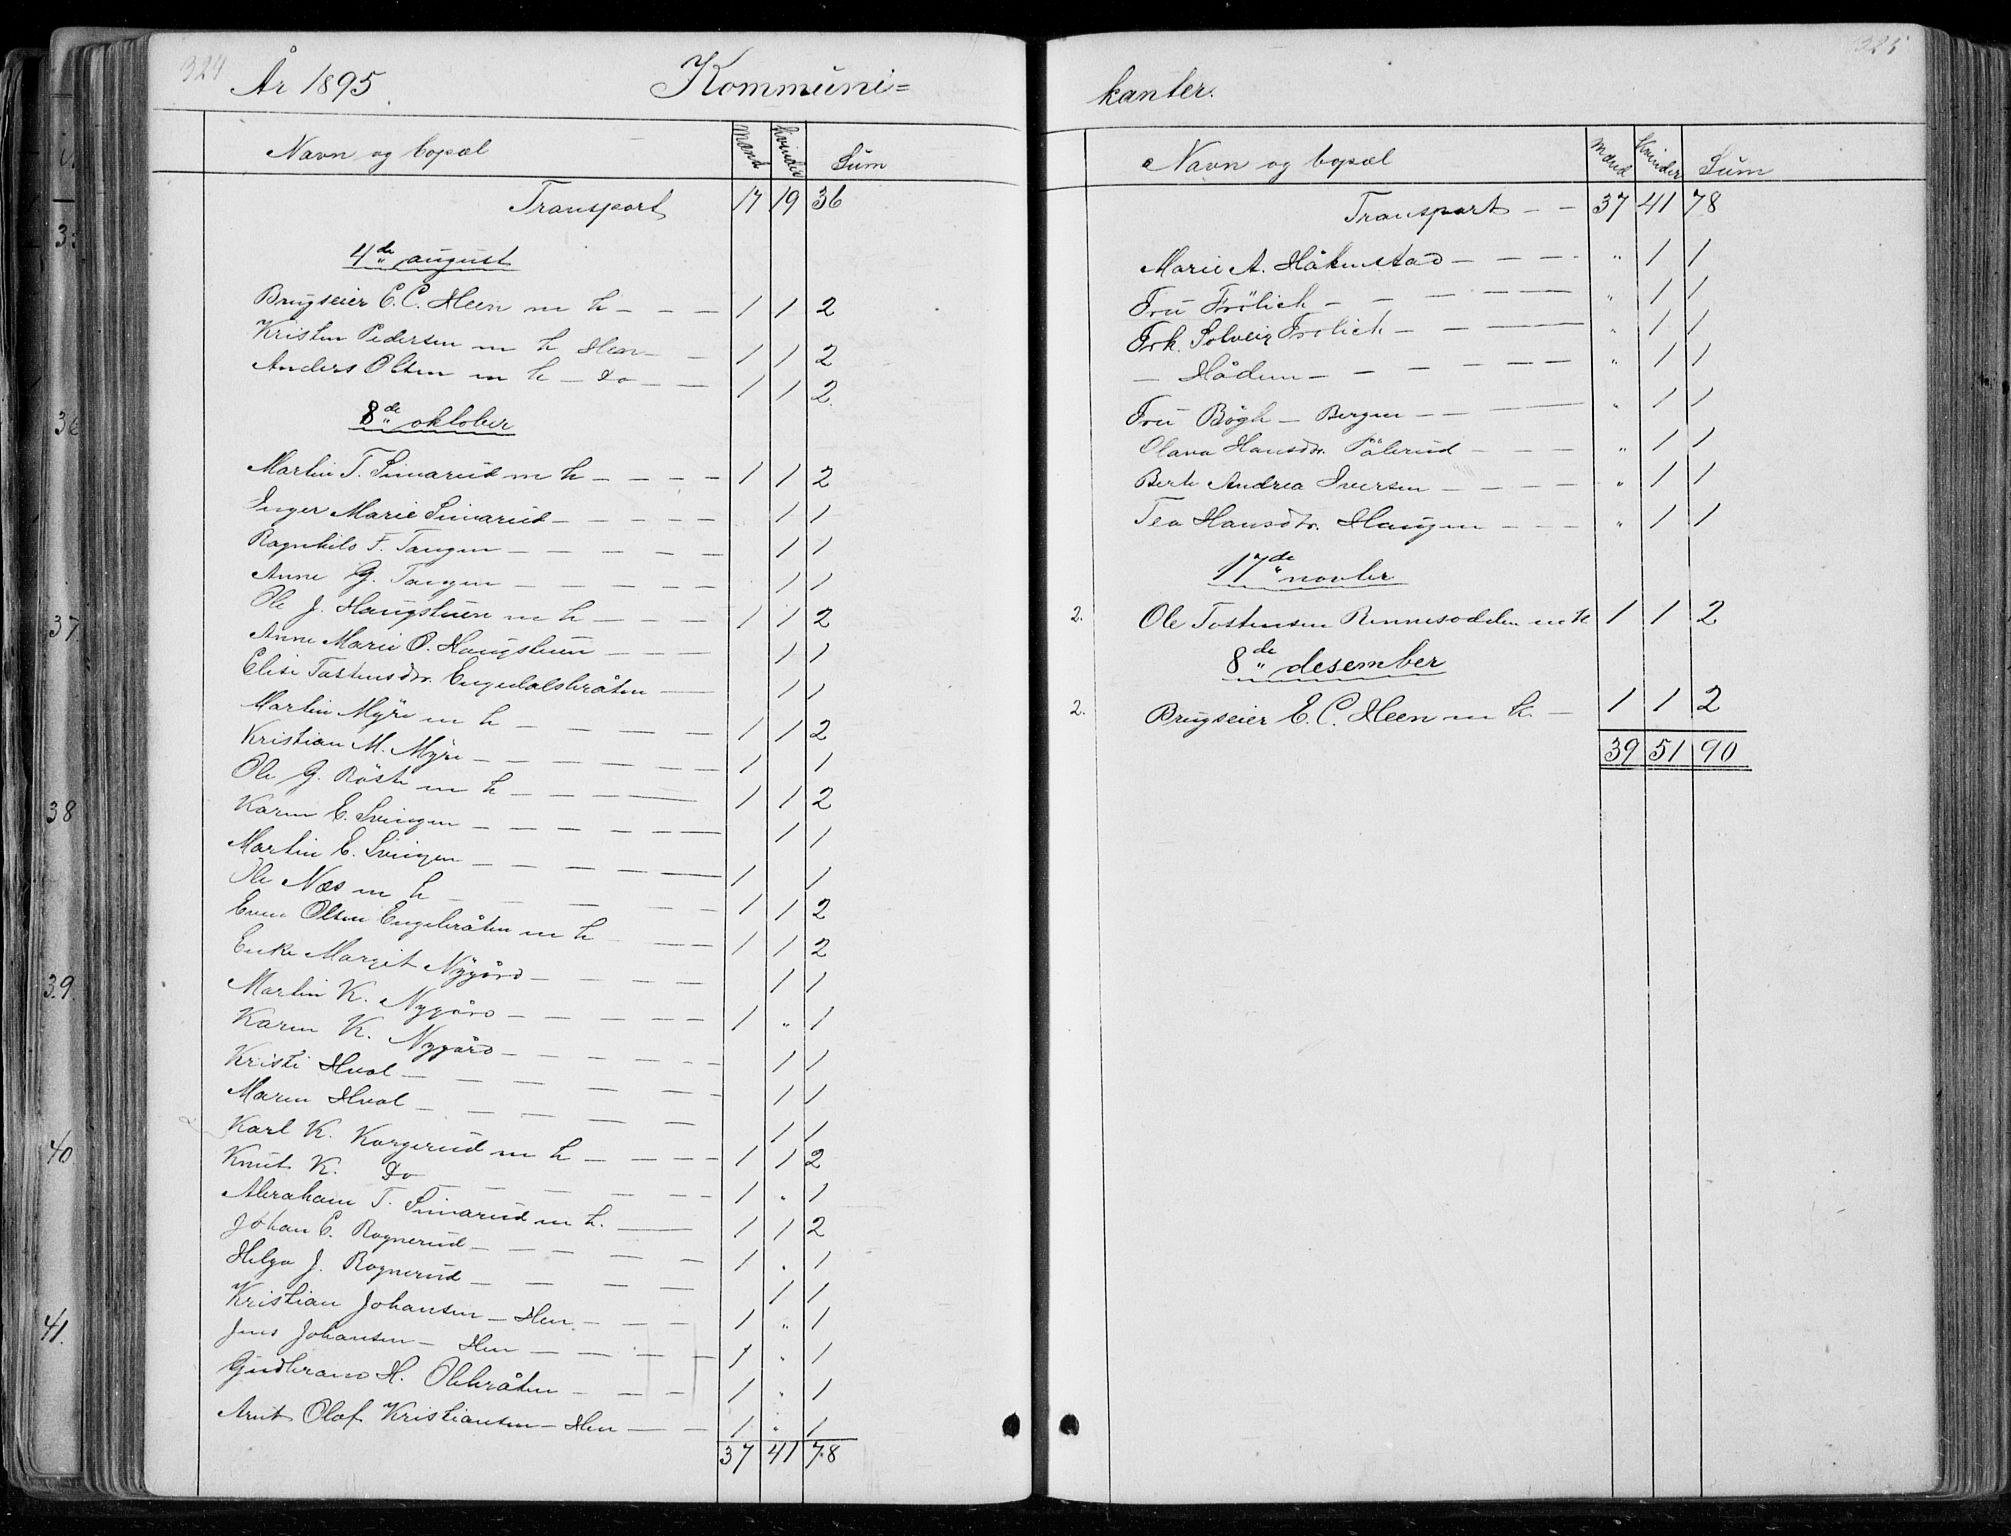 324
År 1895 Kommuni=
Navn og bopæl Mænd Kvinder Sum
Transport 17 19 36
4de august
Brugseier E. C. Heen m h - - - 1 1 2
Kristen Pedersen m h Hen - - 1 1 2
Anders Olsen m h - Do - - - 1 1 2
8de oktober
Martin T. Simarud m h - - - - 1 1 2
Inger Marie Simarud - - - - - 1 1
Ragnhild F. Tangen - - - - - 1 1
Anne G. Tangen - - - - - 1 1
Ole J. Haugstuen m h - - - - 1 1 2
Anne Marie O. Haugstuen - - - - 1 1
Elise Tostensdtr. Engedalsbråten - - 1 1
Martin Myre m h - - - - - 1 1 2
Kristian M. Myre - - - - - - 1 1
Ole G. Röste m h - - - - - 1 1 2
Karen E. Svingen - - - - - - 1 1
Martin E. Svingen - - - - - - 1 1
Ole Næs m h - - - - - - 1 1 2
Even Olsen Engebråten m h - - - 1 1 2
Margit Nygård - - - - - 1 1
Martin K. Nygård - - - - - - 1 " 1
Karen K. Nygård - - - - - - 1 1
Kristi Hval - - - - - - 1 1
Maren Hval - - - - - - 1 1
Karl K. Korgerud m h - - - - 1 1 2
Knut K. Do - - - - - - 1 " 1
Abraham T. Simarud m h. - - 1 1 2
Johan E. Rognerud - - - - - 1 " 1
Helga J. Rognerud - - - - 1 1
Kristian Johansen - Hen - - - - 1 " 1
Jens Johansen - Hen - - - - - 1 " 1
Gudbrand H. Olebråten - - - 1 " 1
Arnt Olaf Kristiansen - Hen - - 1 " 1
37 41 78
325
kanter.
Navn og bopæl Mænd Kvinder Sum
Transport - - 37 41 78
Marie A. Håkenstad - - - - " 1 1
Fru Frölich - - - - - - " 1 1
Frk. Solveig Frolich - - - - " 1 1
- Hådem - - - - - - " 1 1
Fru Bögh - Bergen - - - " 1 1
Olava Hansdtr. Pålerud - - - " 1 1
Berte Andrea Iversen - - - - " 1 1
Tea Hansdtr. Haugen - - - " 1 1
17de novber
2. Ole Tostensen Rennesodden m h 1 1 2
8de desember
2. Brugseier E. C. Heen m h. - 1 1 2
39 51 90
35
36
37
38
39.
40
41.